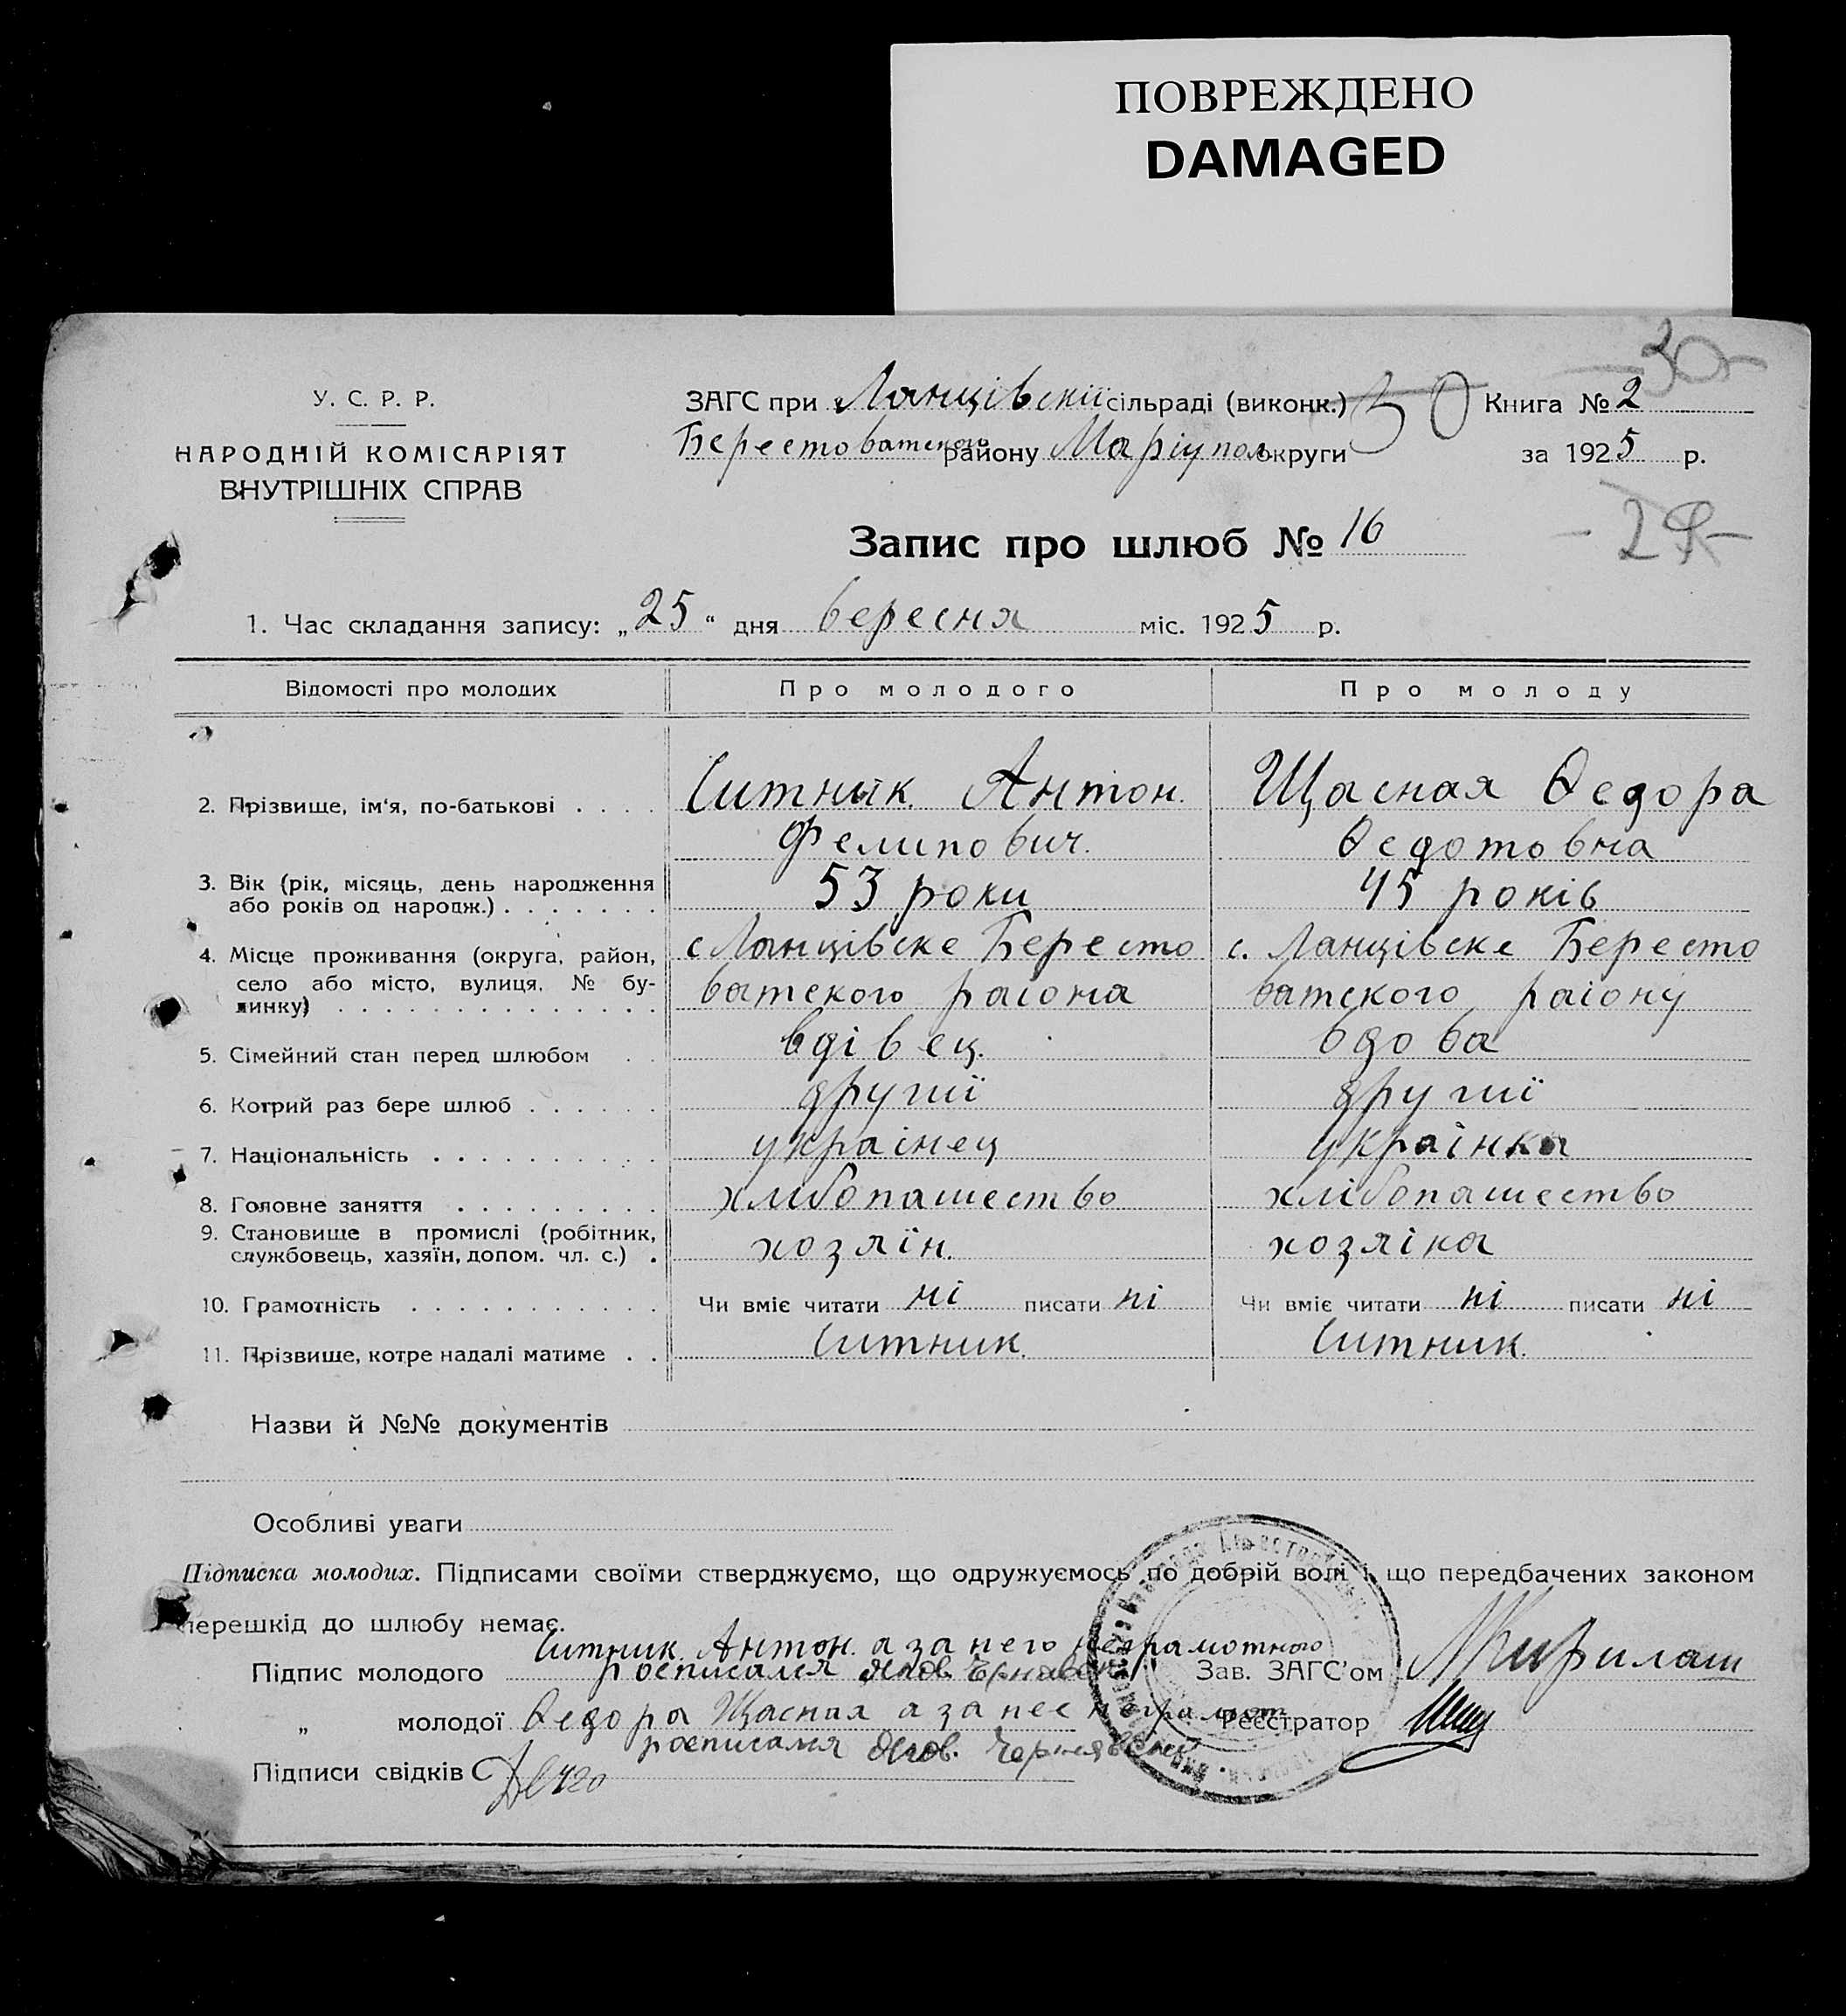 ПОВРЕЖДЕНО
DAMAGED
-30-
У. С. Р. Р.
НАРОДНІЙ КОМІСАРІЯТ
ВНУТРІШНІХ СПРАВ
ЗАГС при Ланцівскії сільраді (виконк.) 30 Книга № 2
Берестоватского району Маріупол округи за 1925 р.
Запис про шлюб № 16
- 29 -
1. Час складання запису: „25“ дня вересня міс. 1925 р.
Відомості про молодих Про молодого Про молоду
2. Прізвище, ім‘я, по-батькові . . . . Ситник Антон. Щасная Ѳедора
Фелипович. Ѳедотовна
3. Вік (рік, місяць, день народження
або років од народж.) . . . . . . . 53 роки 45 років
4. Місце проживання (округа, район, с Ланцівске Бересто с. Ланцівске Бересто
село або місто, вулиця, № бу-
динку) . . . . . . . . . . . . . . ватского раіона ватского раіону
5. Сімейний стан перед шлюбом . . вдівец. вдова
6. Котрий раз бере шлюб . . . . . . другиї другиї
7. Національність . . . . . . . . . . украінец украінка
8. Головне заняття . . . . . . . . . хлибопашество хлібопашество
9. Становище в промислі (робітник,
службовець, хазяїн, допом. чл. с.) . хозяїн. хозяіка
10. Грамотність . . . . . . . . . . . Чи вміє читати ні писати ні Чи вміє читати ні писати ні
11. Прізвище, котре надалі матиме . . Ситник. Ситник.
Назви й №№ документів
Особливі уваги
Підписка молодих. Підписами своїми стверджуємо, що одружуємось по добрій волі і що передбачених законом
перешкід до шлюбу немає.
Ситник Антон. а за него неграмотного
Підпис молодого росписался Зав. ЗАГС'ом
„ молодої Ѳедора Щасная а за нее неграмот Реєстратор
росписался Чернявский
Підписи свідків